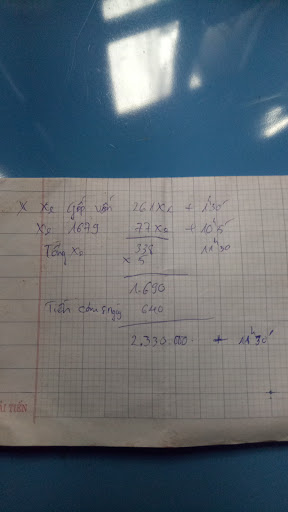 X Xe Góp vốn 261 Xe + 1h30'
Xe 1679 77 Xe + 10h5'
Tổng Xe 338 11h30
x 5
1.690
Tiền cơm 5 ngày 640
2.330.000 + 11h30'
ẢI TIẾN